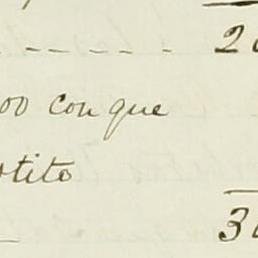 20
00 con que
otito
30